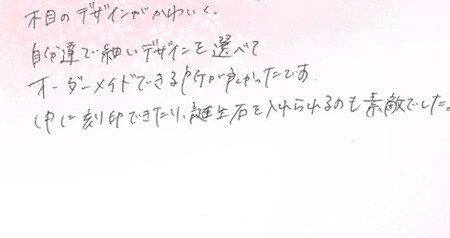 木目のデザインがかわいく、
自分達で細いデザインを選べて
オーダーメイドできる所が良かったです。
中に刻印できたり、誕生石を入れられるのも素敵でした。